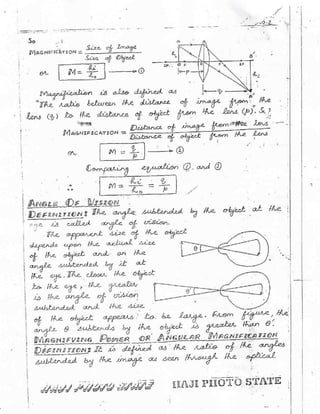 So
MAGNIFICATION = Size of Image
Size of Object
or M = hi / ho → ①
Magnification is also defined as
"The ratio between the distance of image from the
lens (q) to the distance of object from the lens (p)". So
MAGNIFICATION = Distance of image from the lens
Distance of object from the lens
or, M = q / p → ②
Comparing equation ①. and ②
∴ M = hi / ho = q / p
ANGLE OF VISION
DEFINITION: The angle subtended by the object at the
eye is called angle of vision.
The apparent size of the object
depends upon the actual size
of the object and on the
angle subtended by it at
the eye. The closer the object
to the eye, the greater
is the angle of vision
subtended and the size
of the object appears to be large. From figure, the
angle θ subtends by the object is greater than θ'.
MAGNIFYING POWER OR ANGULAR MAGNIFICATION
DEFINITION: It is defined as the ratio of the angles
subtended by the image as seen through the optical
HAJI PHOTO STATE